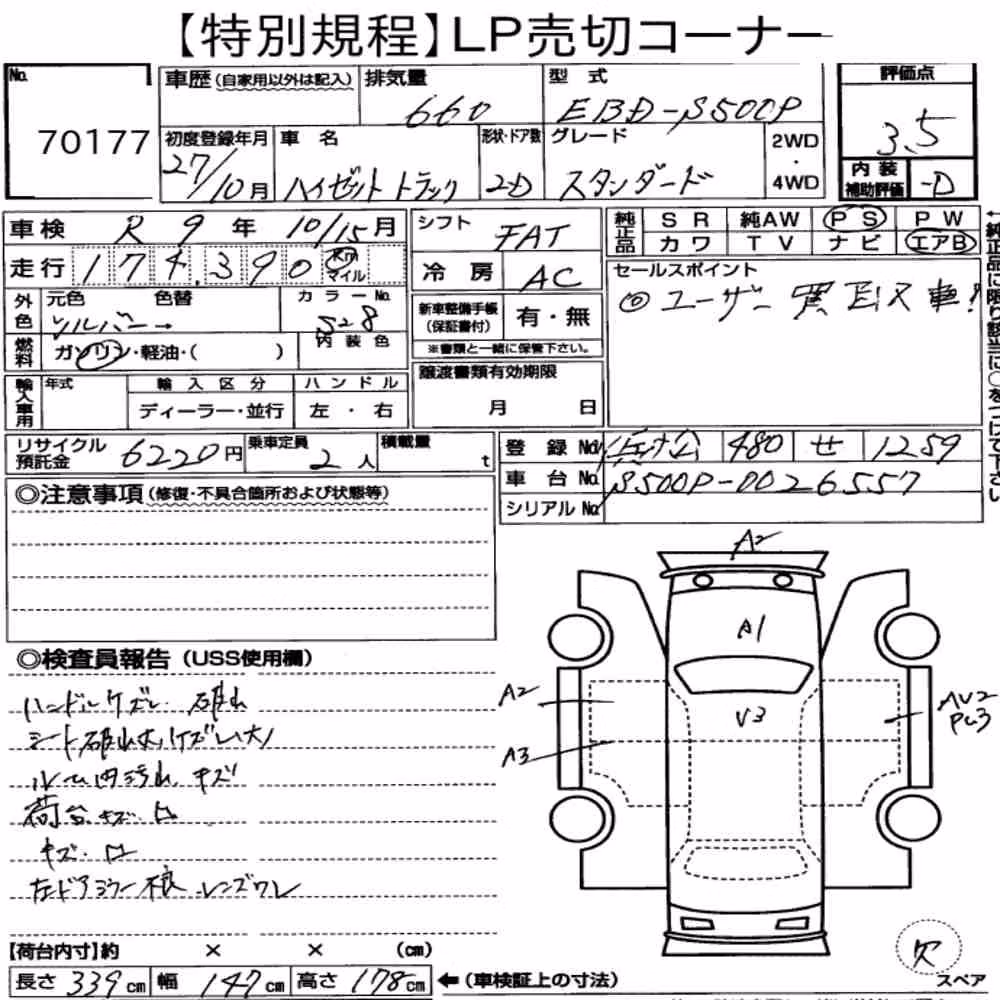 【特別規程】LP売切コーナー
No. 70177
車歴(自家用以外は記入)
排気量 660
型式 EBD-S500P
評価点 3.5
初度登録年月 27/10月
車名 ハイゼットトラック
形状・ドア数 2D
グレード スタンダード
2WD・4WD
内装補助評価 -D
車検 R 9年 10/15月
シフト FAT
純正品 SR 純AW PS PW
カワ TV ナビ エアB
走行 174,390 Km マイル
冷房 AC
セールスポイント
◎ユーザー買取車!
外色 元色 色替 カラーNo.
シルバー→ S28
新車整備手帳(保証書付) 有・無
※書類と一緒に保管下さい。
燃料 ガソリン・軽油・( ) 内装色
輸入車用 年式 輸入区分 ハンドル
ディーラー・並行 左・右
譲渡書類有効期限
月 日
リサイクル預託金 6220円
乗車定員 2人
積載量 t
登録No. 480 せ 1259
車台No. S500P-0026557
シリアルNo.
◎注意事項(修復・不具合箇所および状態等)
◎検査員報告(USS使用欄)
ハンドルケズレ
シート破れ大
ルーム内汚れ キズ
荷台キズ 凹
キズ 凹
左ドアミラー不良 レンズワレ
A2
A1
A2
V3
AV2
A3
欠
スペア
【荷台内寸】約 × × (cm)
長さ 339cm 幅 147cm 高さ 178cm ←(車検証上の寸法)